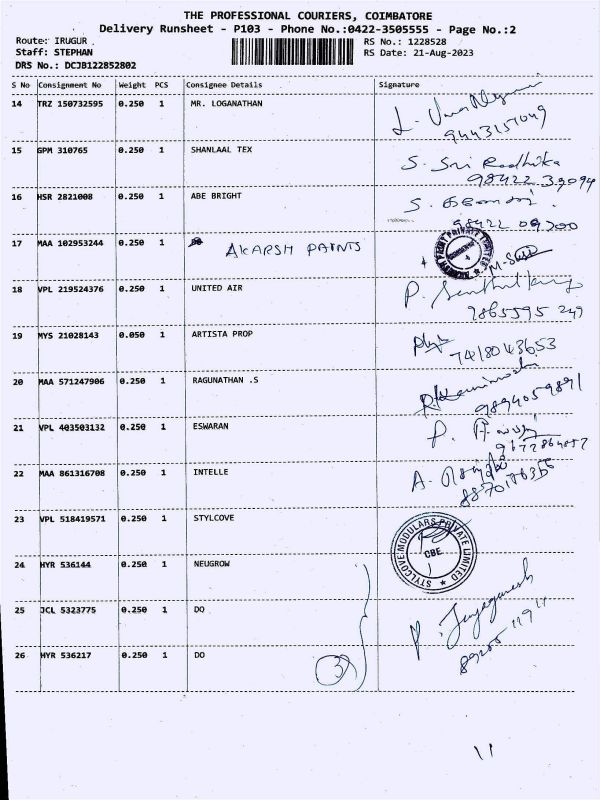 THE PROFESSIONAL COURIERS, COIMBATORE
Delivery Runsheet - P103 - Phone No.:0422-3505555 - Page No.:2
Route: IRUGUR RS No.: 1228528
Staff: STEPHAN RS Date: 21-Aug-2023
DRS No.: DCJB122852802
S No Consignment No Weight PCS Consignee Details Signature
14 TRZ 150732595 0.250 1 MR. LOGANATHAN
9443157049
15 GPM 310765 0.250 1 SHANLAAL TEX S. Sri Radhika
98422 39094
16 HSR 2821008 0.250 1 ABE BRIGHT S.
98422 09200
17 MAA 102953244 0.250 1 AKARSH PAINTS
18 VPL 219524376 0.250 1 UNITED AIR P.
7865595 249
19 MYS 21028143 0.050 1 ARTISTA PROP
7418043653
20 MAA 571247906 0.250 1 RAGUNATHAN .S
9894059891
21 VPL 403503132 0.250 1 ESWARAN P.
22 MAA 861316708 0.250 1 INTELLE A.
23 VPL 518419571 0.250 1 STYLCOVE STYLCOVE MODULARS PRIVATE LIMITED CBE
24 HYR 536144 0.250 1 NEUGROW
25 JCL 5323775 0.250 1 DO P. Jeyaganesh
26 HYR 536217 0.250 1 DO
3
11